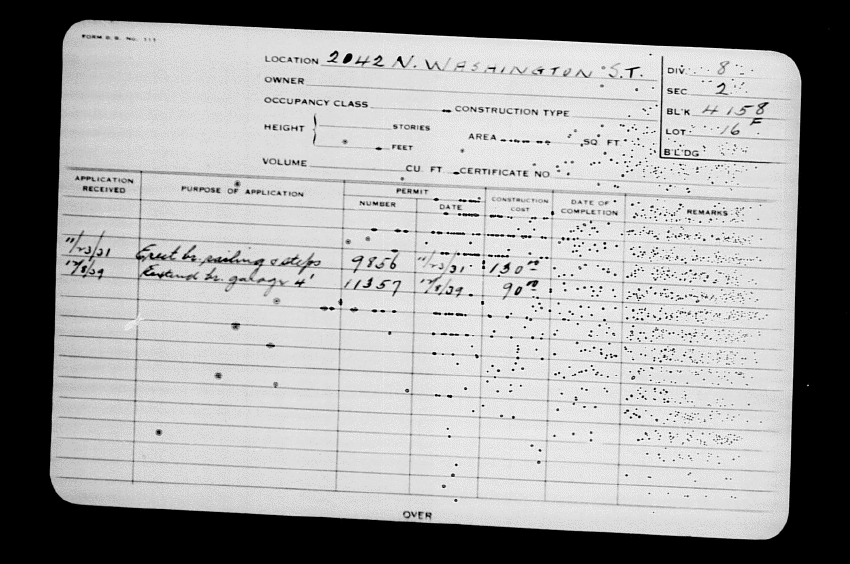 FORM B. B. No. 111
LOCATION 2042 N. WASHINGTON ST.
OWNER
OCCUPANCY CLASS CONSTRUCTION TYPE
HEIGHT { STORIES AREA SQ FT
FEET
VOLUME CU. FT. CERTIFICATE NO
DIV. 8
SEC 2
BL'K 4158
LOT 16 F
B'L'DG
APPLICATION RECEIVED PURPOSE OF APPLICATION PERMIT NUMBER DATE CONSTRUCTION COST DATE OF COMPLETION REMARKS
11/23/31 Erect br. railing & steps 9856 11/23/31 130.00
12/8/39 Extend br. garage 4' 11357 12/8/39 90.00
OVER